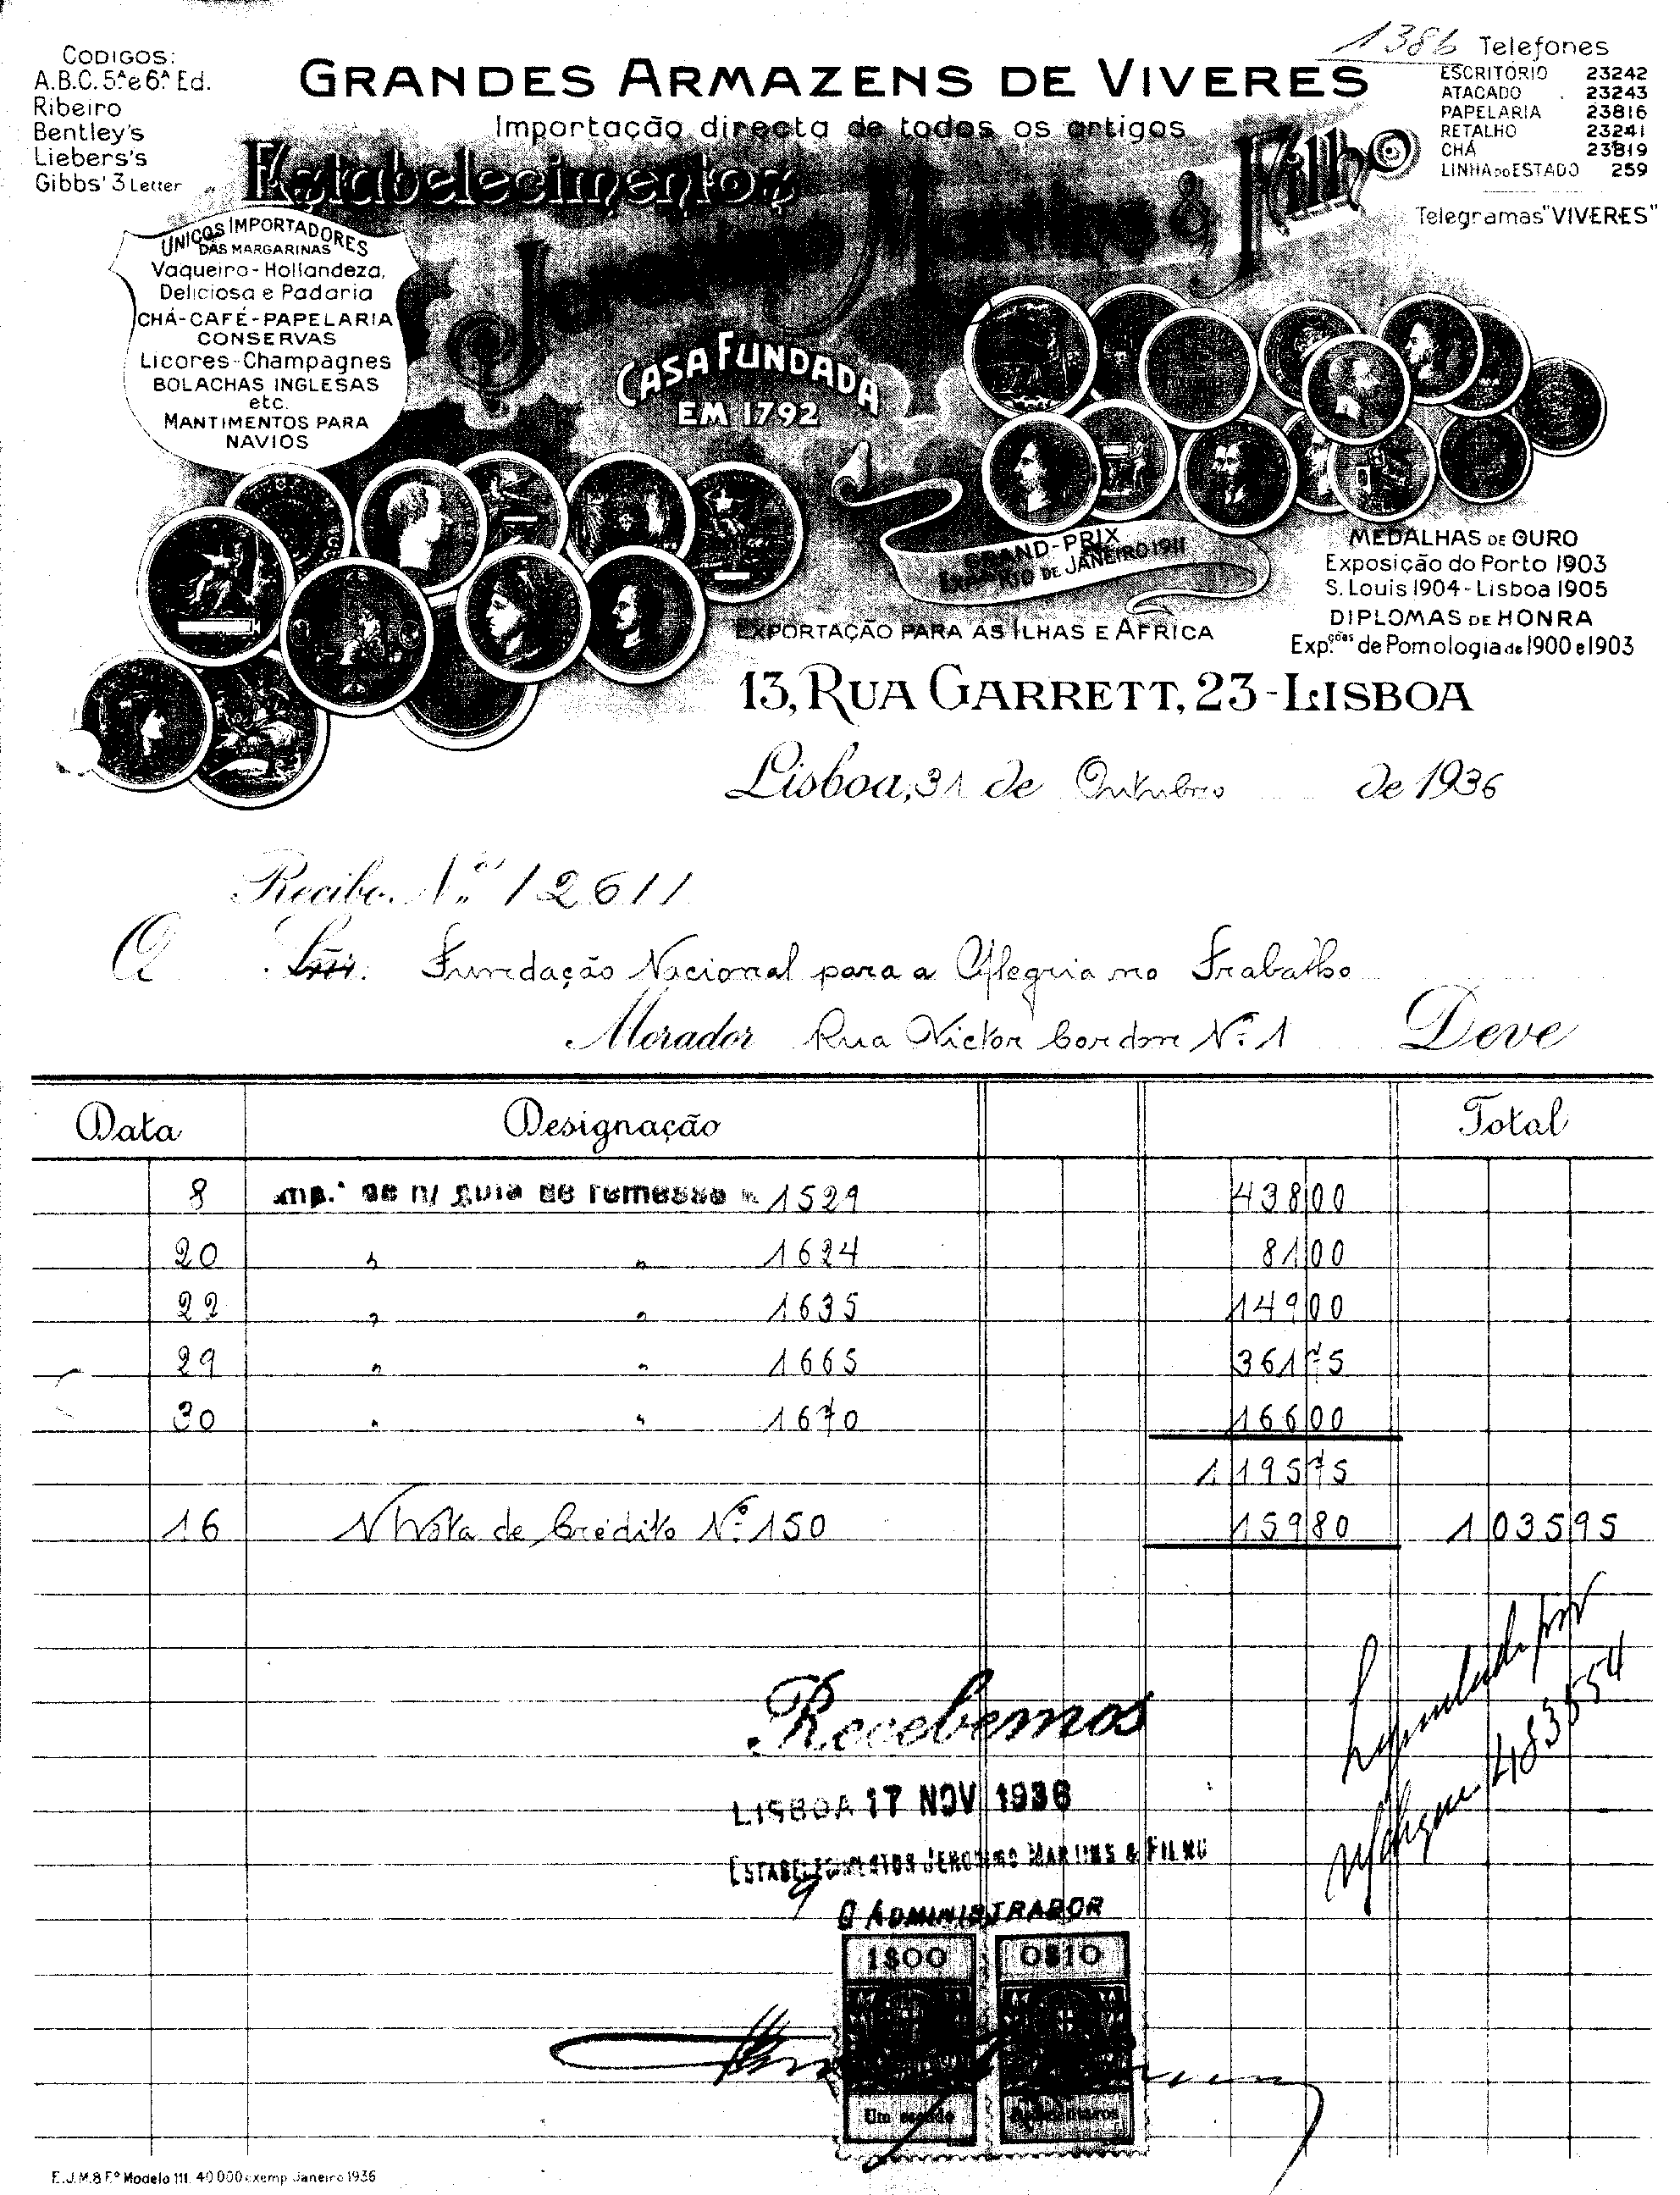 1386
CODIGOS:
A.B.C. 5ª e 6ª Ed.
Ribeiro
Bentley's
Liebers's
Gibbs' 3 Letter
GRANDES ARMAZENS DE VIVERES
Importação directa de todos os artigos
Estabelecimentos
Jeronimo Martins & Filho
Telefones
ESCRITÓRIO 23242
ATACADO . 23243
PAPELARIA 23816
RETALHO 23241
CHÁ 23819
LINHA DO ESTADO 259
Telegramas "VIVERES"
UNICOS IMPORTADORES
DAS MARGARINAS
Vaqueiro-Hollandeza,
Deliciosa e Padaria
CHÁ-CAFÉ-PAPELARIA
CONSERVAS
Licores-Champagnes
BOLACHAS INGLESAS
etc.
MANTIMENTOS PARA
NAVIOS
CASA FUNDADA
EM 1792
GRAND-PRIX
EXP. RIO DE JANEIRO 1911
MEDALHAS DE OURO
Exposição do Porto 1903
S. Louis 1904-Lisboa 1905
DIPLOMAS DE HONRA
Exp.ções de Pomologia de 1900 e 1903
EXPORTAÇÃO PARA AS ILHAS E AFRICA
13, RUA GARRETT, 23-LISBOA
Lisboa, 31 de Outubro de 1936
Recibo N.º 12611
A Snr. Fundação Nacional para a Alegria no Trabalho
Morador Rua Victor Cordon Nº 1 Deve
Data Designação Total
8 Imp.ª de n/ guia de remessa 1529 43800
20 " " 1624 8100
22 " " 1635 14900
29 " " 1665 36175
30 " " 1670 16600
119575
16 N/ Nota de Crédito Nº 150 15980 103595
Liquidado por
n/ cheque 483554
Recebemos
LISBOA 17 NOV 1936
ESTABELECIMENTOS JERONIMO MARTINS & FILHO
O ADMINISTRADOR
1$00 0$10
Um escudo
E.J.M.& F.º Modelo 111. 40 000 exemp Janeiro 1936